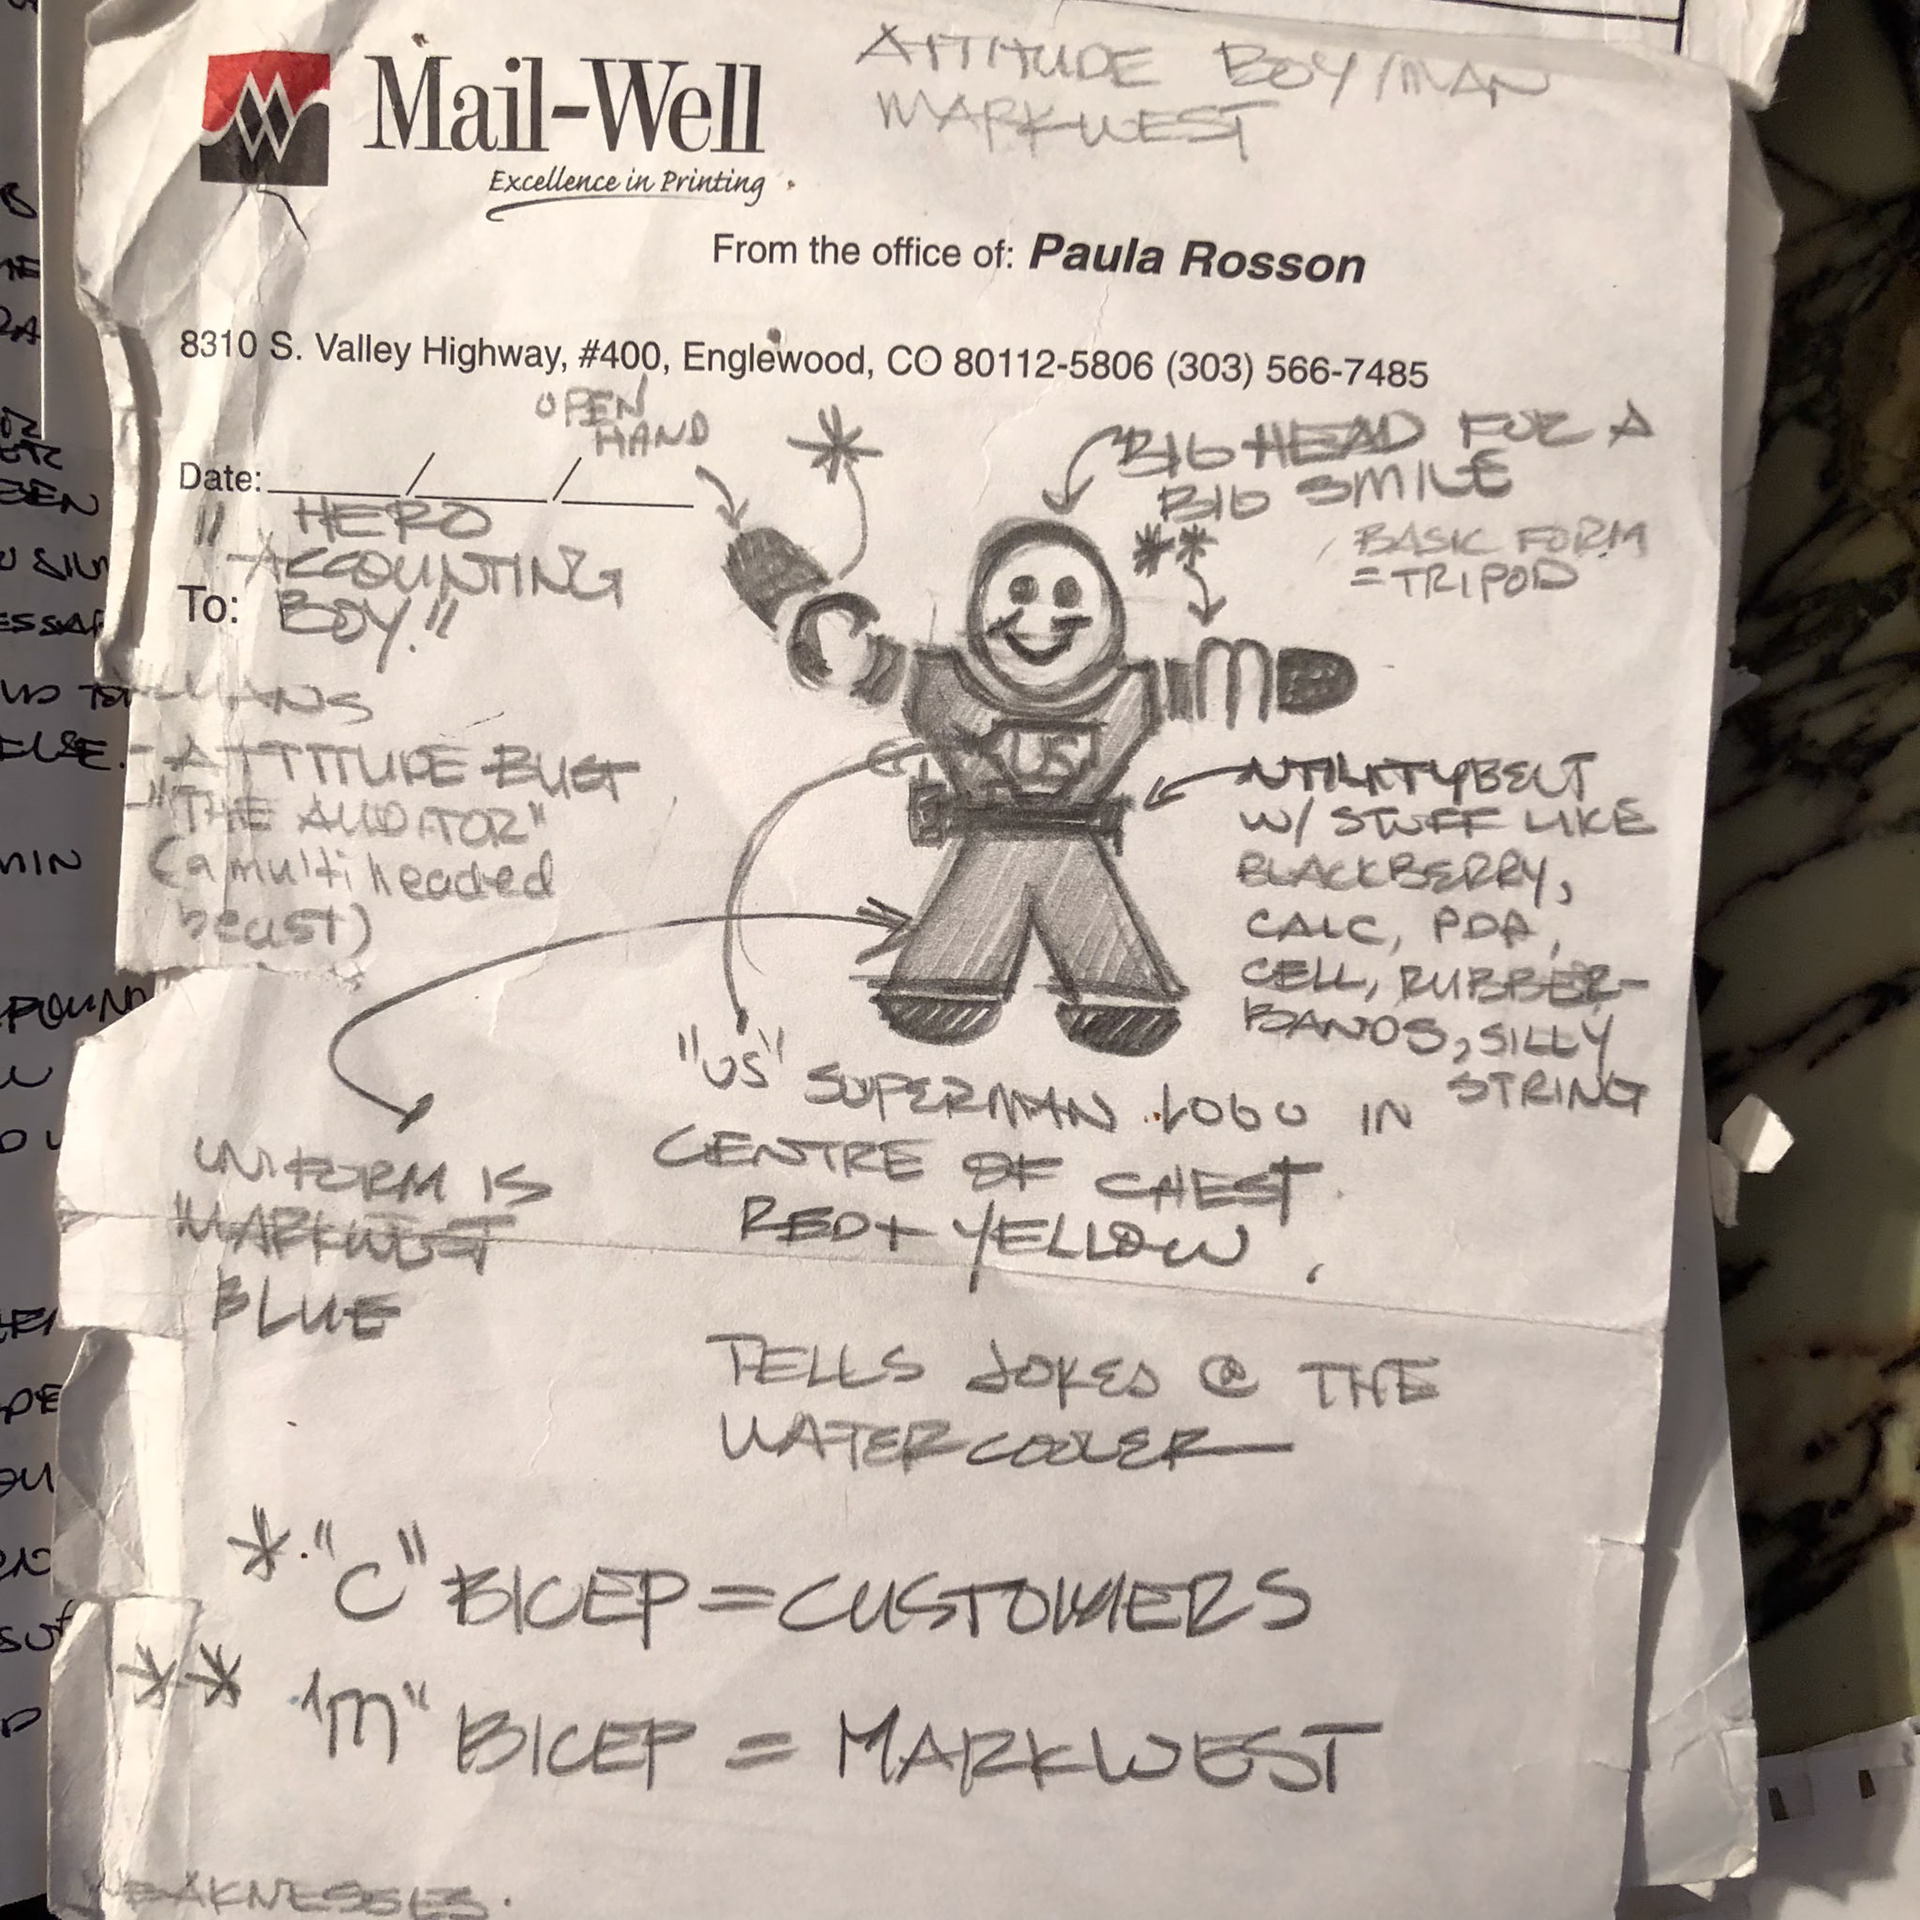 ATTITUDE BOY/MAN
MARKWEST
Mail-Well
Excellence in Printing
From the office of: Paula Rosson
8310 S. Valley Highway, #400, Englewood, CO 80112-5806 (303) 566-7485
OPEN
HAND
*
BIG HEAD FOR A
BIG SMILE
**
BASIC FORM
= TRIPOD
Date: / /
" HERO
ACCOUNTING
To: BOY."
C
M
US
- ATTITUDE BUST
- "THE AUDITOR"
(a multi headed
beast)
UTILITYBELT
W/ STUFF LIKE
BLACKBERRY,
CALC, PDA,
CELL, RUBBER-
BANDS, SILLY
STRING
"US" SUPERMAN LOGO IN
CENTRE OF CHEST.
RED + YELLOW
UNIFORM IS
"MARKWEST
BLUE
TELLS JOKES @ THE
WATERCOOLER
* "C" BICEP = CUSTOMERS
** "M" BICEP = MARKWEST
WEAKNESSES.